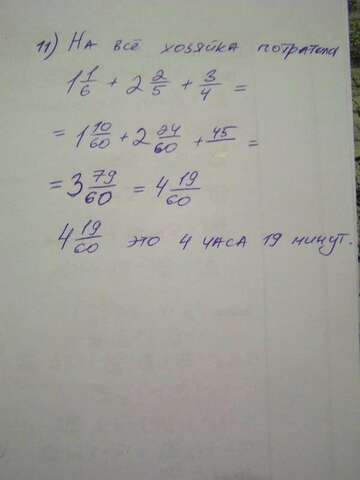 11) На всё хозяйка потратила
1 1/6 + 2 2/5 + 3/4 =
= 1 10/60 + 2 24/60 + 45/ =
= 3 79/60 = 4 19/60
4 19/60 это 4 часа 19 минут.